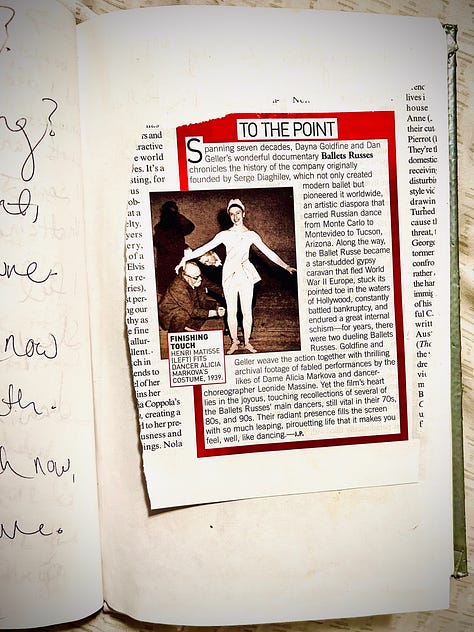 now
now,
rs and
ractive
e world
ves. It's a
sting, for
ob-
at a
elty.
yers
ery,
of a
Elvis
re a
ries).
st per-
ng our
thy as
e fine
allur-
llent.
tch in
ends to
el of her
ins her
a Coppola's
, creating a
d to her pre-
usness and
ings. Nola
TO THE POINT
Spanning seven decades, Dayna Goldfine and Dan
Geller's wonderful documentary Ballets Russes
chronicles the history of the company originally
founded by Serge Diaghilev, which not only created
modern ballet but
pioneered it worldwide,
an artistic diaspora that
carried Russian dance
from Monte Carlo to
Montevideo to Tucson,
Arizona. Along the way,
the Ballet Russe became
a star-studded gypsy
caravan that fled World
War II Europe, stuck its
pointed toe in the waters
of Hollywood, constantly
battled bankruptcy, and
endured a great internal
schism—for years, there
were two dueling Ballets
Russes. Goldfine and
Geller weave the action together with thrilling
archival footage of fabled performances by the
likes of Dame Alicia Markova and dancer-
choreographer Leonide Massine. Yet the film's heart
lies in the joyous, touching recollections of several of
the Ballets Russes' main dancers, still vital in their 70s,
80s, and 90s. Their radiant presence fills the screen
with so much leaping, pirouetting life that it makes you
feel, well, like dancing.—J.P.
FINISHING
TOUCH
HENRI MATISSE
(LEFT) FITS
DANCER ALICIA
MARKOVA'S
COSTUME, 1939.
lives i
house
Anne (
their cut
Pierrot (i
They're th
domestic
receiving
disturbin
style vic
drawin
Turned
cause th
threat, t
George
former
confro
rather
the har
immig
of his
ful C
writt
Aus
(The